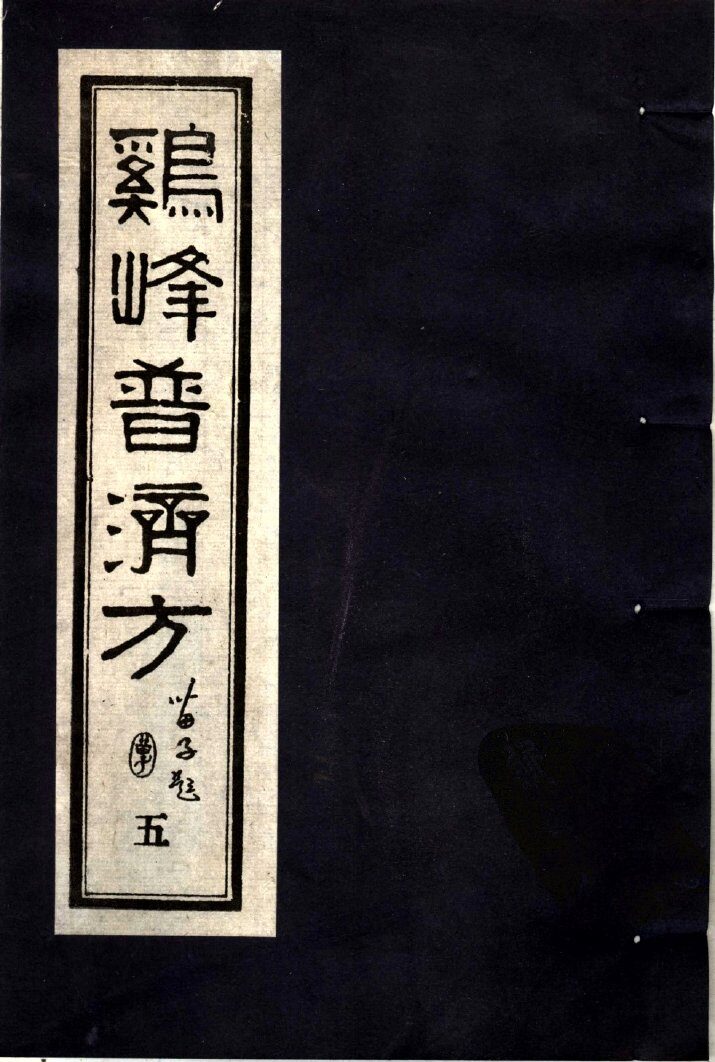 鷄峰普濟方
苗子题
五